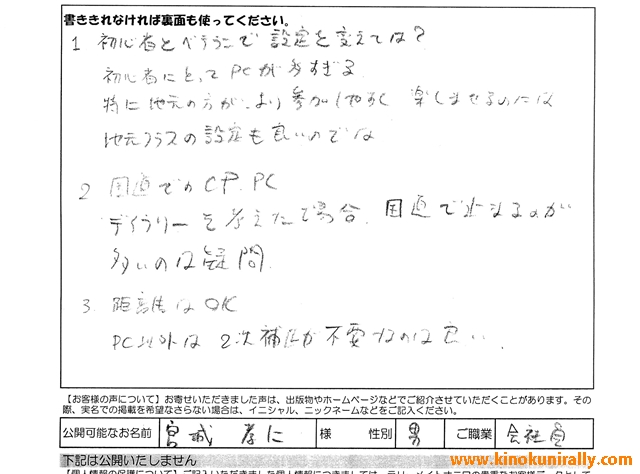 書ききれなければ裏面も使ってください。
1 初心者とベテランで設定を変えては?
初心者にとってPCが多すぎる
特に地元の方が、より参加しやすく 楽しませるのには
地元クラスの設定も良いのでは
2 国道でのCP. PC
デイラリーを考えた場合、国道で止まるのが
多いのは疑問
3. 距離はOK
PC以外は2次補正が不要なのは良い
【お客様の声について】お寄せいただきました声は、出版物やホームページなどでご紹介させていただくことがあります。その
際、実名での掲載を希望なさらない場合は、イニシャル、ニックネームなどをご記入ください。
公開可能なお名前 宮城 孝仁 様 性別 男 ご職業 会社員
下記は公開いたしません
www.kinokunirally.com